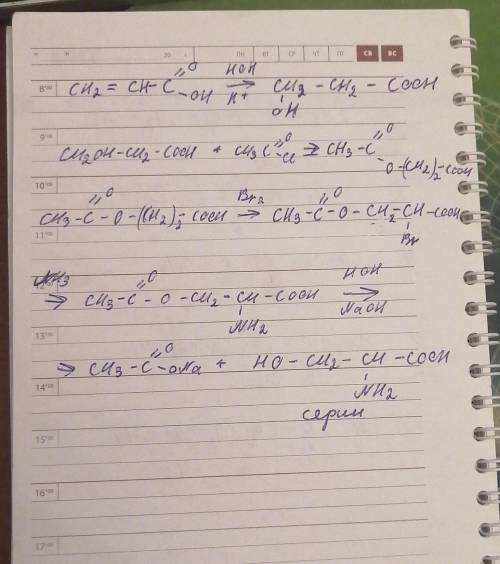 ПН ВТ СР ЧТ ПТ СБ ВС
8°⁰⁰ CH2 = CH-C =O -OH HOH → H+ CH2 - CH2 - COOH
OH
9°⁰⁰
CH2OH-CH2-COOH + CH3C =O -Cl → CH3-C =O
O-(CH2)2-COOH
10°⁰⁰
CH3-C =O -O-(CH2)2-COOH Br2 → CH3-C =O -O-CH2-CH-COOH
11°⁰⁰ Br
NH3
→ CH3-C =O -O-CH2-CH-COOH HOH → NaOH
NH2
13°⁰⁰
→ CH3-C =O -ONa + HO-CH2-CH-COOH
14°⁰⁰ NH2
серин
15°⁰⁰
16°⁰⁰
17°⁰⁰